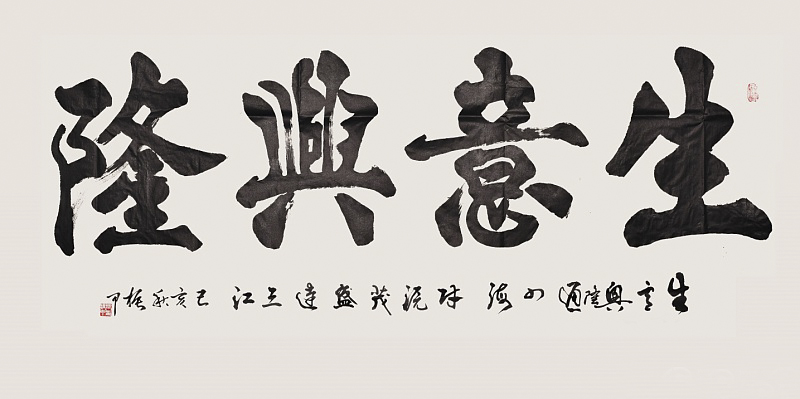 生意興隆
生意興隆通四海財源茂盛達三江己亥秋